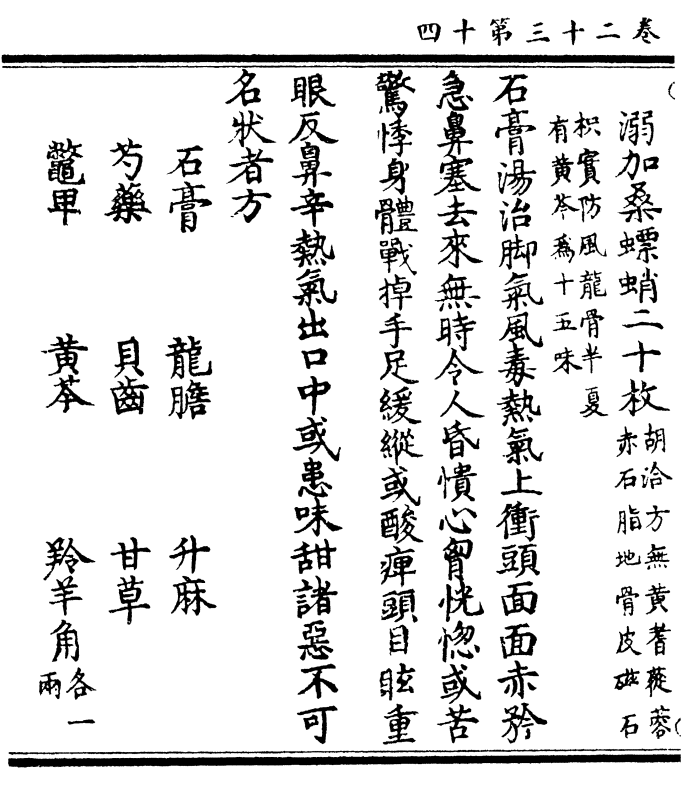 卷二十三第十四
溺加桑螵蛸二十枚胡洽方無黃蓍蓯蓉
赤石脂地骨皮磁石
枳實防風龍骨半夏
有黃芩爲十五味
石膏湯治脚氣風毒熱氣上衝頭面面赤矜
急鼻塞去來無時令人昏憒心胷恍惚或苦
驚悸身體戰掉手足緩縱或酸痺頭目眩重
眼反鼻辛熱氣出口中或患味甜諸惡不可
名狀者方
石膏 龍膽 升麻
芍藥 貝齒 甘草
鼈甲 黃芩 羚羊角各一兩